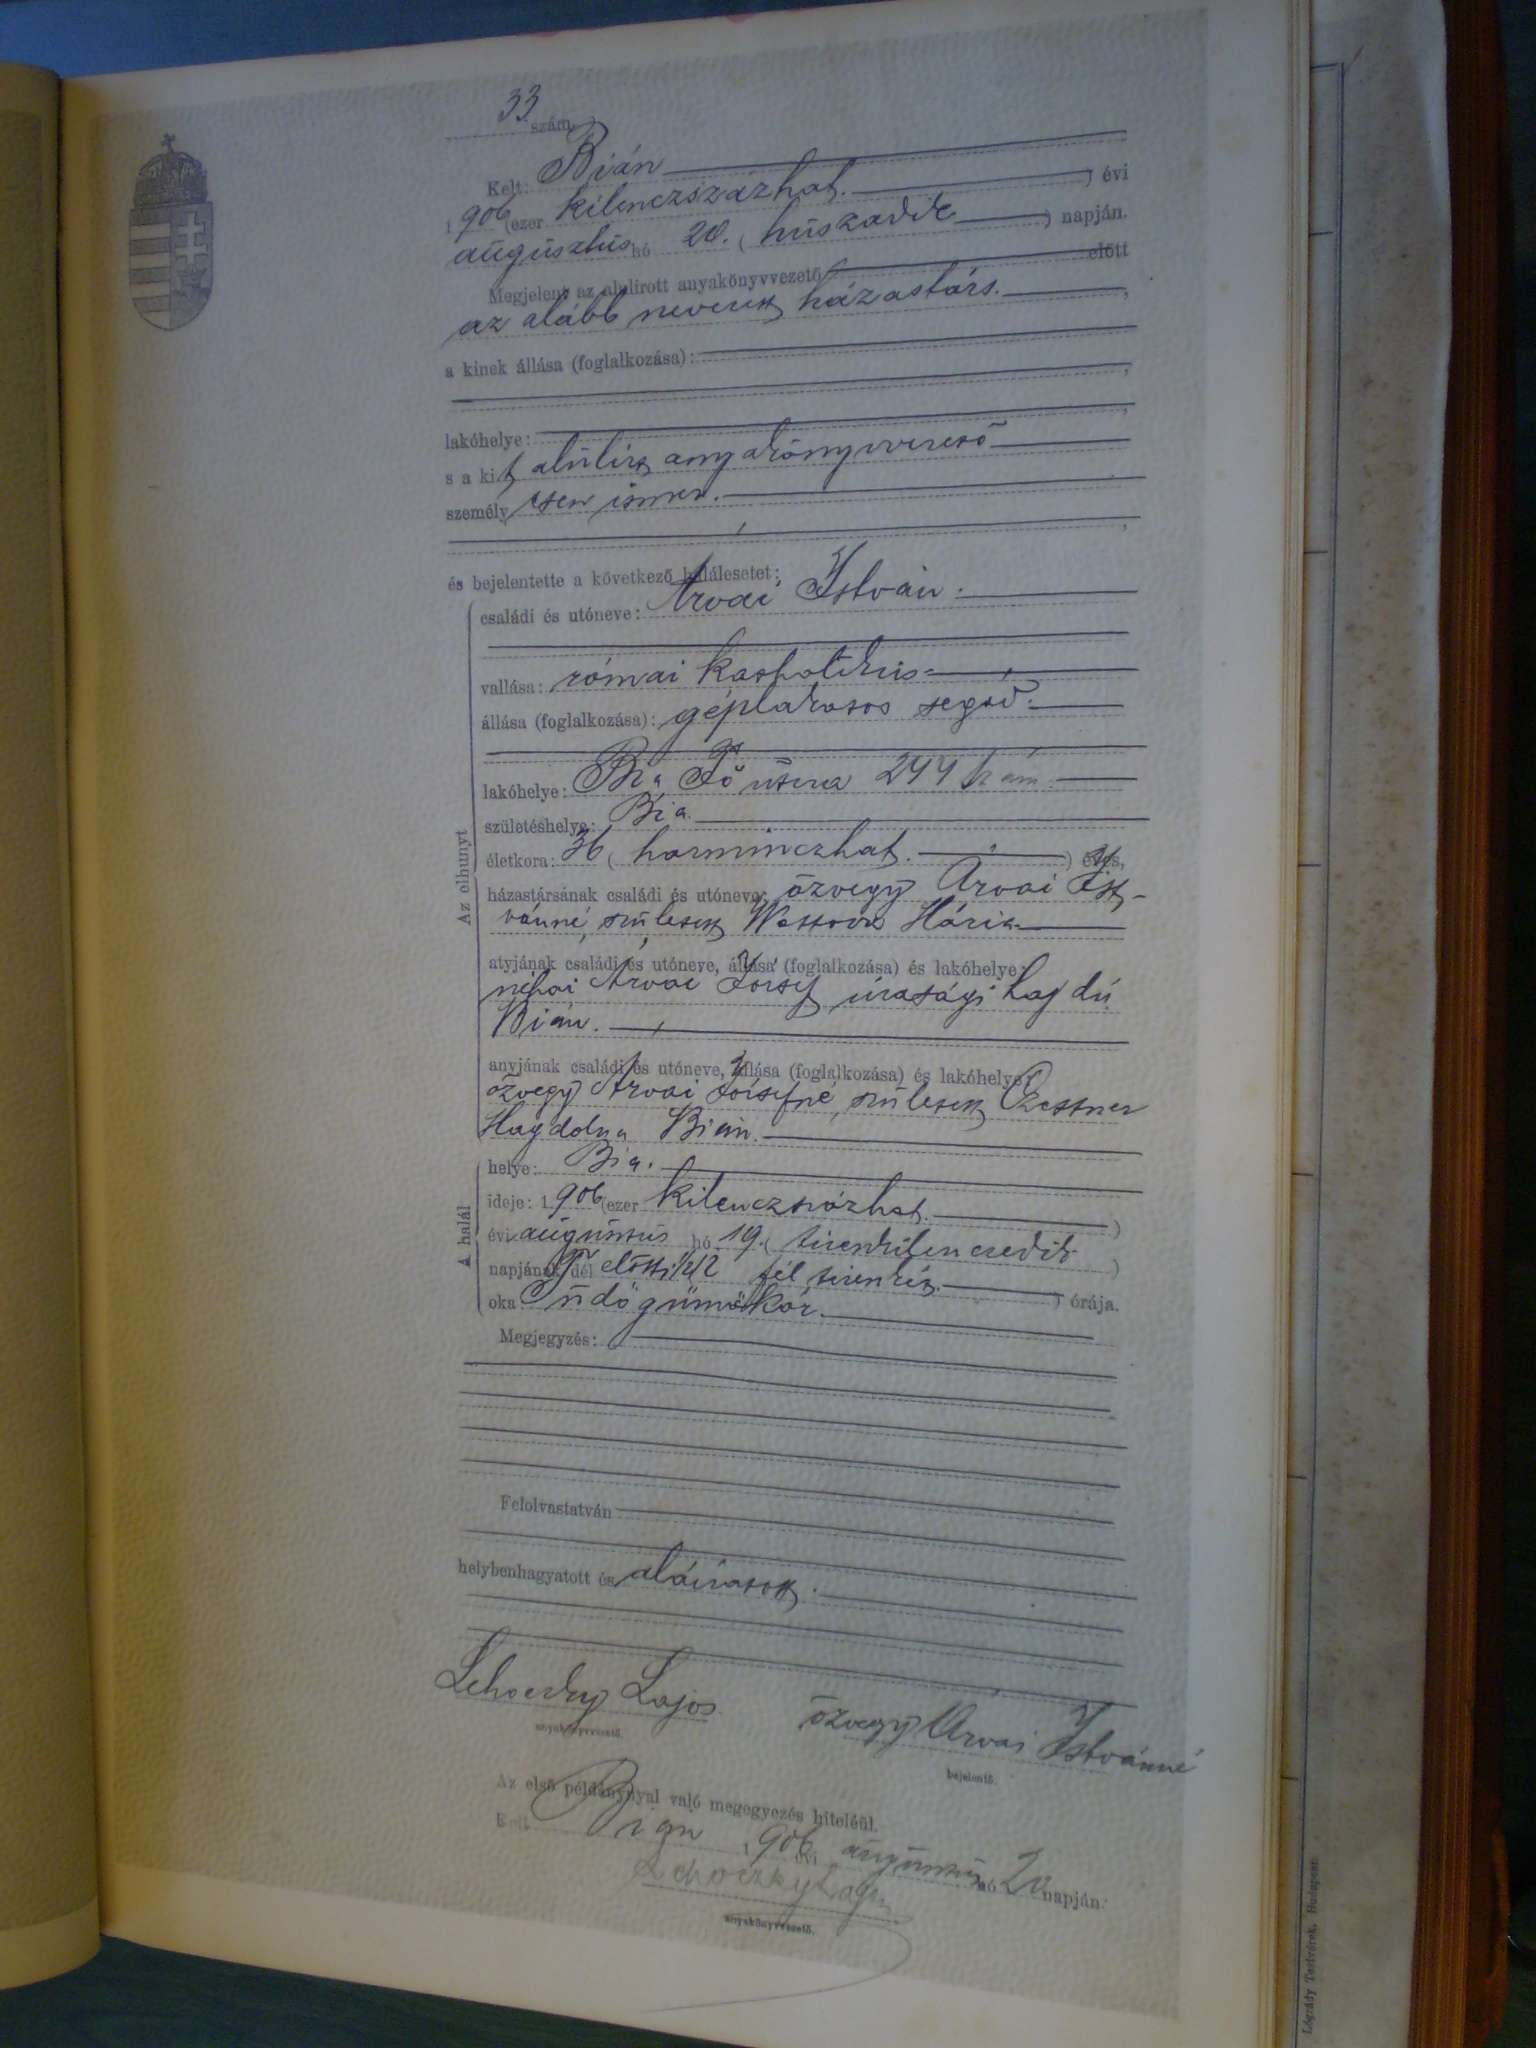 33 szám.
Kelt: Bián
1 906 (ezer kilenczszázhat. ) évi
augusztus hó 20. ( huszadik ) napján.
Megjelent az alulirott anyakönyvvezető előtt
az alább nevezett házastárs. ,
a kinek állása (foglalkozása):
,
lakóhelye: ,
s a kit alulirt anyakönyvvezető
személy esen ismer.
,
és bejelentette a következő halálesetet:
családi és utóneve: Árvai István.
vallása: római katholikus
állása (foglalkozása): géplakatos segéd.
lakóhelye: Bia Fő utcza 244 szám.
születéshelye: Bia.
életkora: 36 ( harminczhat. ) éves,
házastársának családi és utóneve: özvegy Árvai Ist-
vánné, született Mária
atyjának családi és utóneve, állása (foglalkozása) és lakóhelye:
néhai Árvai József urasági hajdú
Bián.
anyjának családi és utóneve, állása (foglalkozása) és lakóhelye:
özvegy Árvai Józsefné, született
Magdolna Bián.
helye: Bia.
ideje: 1 906 (ezer kilenczszázhat. )
évi augusztus hó 19. ( tizenkilenczedik )
napjának dél előtti 1/2 12 fél tizenkét. ) órája.
oka: Tüdőgümőkór.
Az elhunyt
A halál
Megjegyzés:
Felolvastatván
helybenhagyatott és aláíratott.
Lehoczky Lajos özvegy Árvai Istvánné
anyakönyvvezető. bejelentő.
Az első példánynyal való megegyezés hiteléül.
Kelt Bián 1 906 évi augusztus hó 20 napján.
Lehoczky Lajos
anyakönyvvezető.
Légrády Testvérek, Budapest.